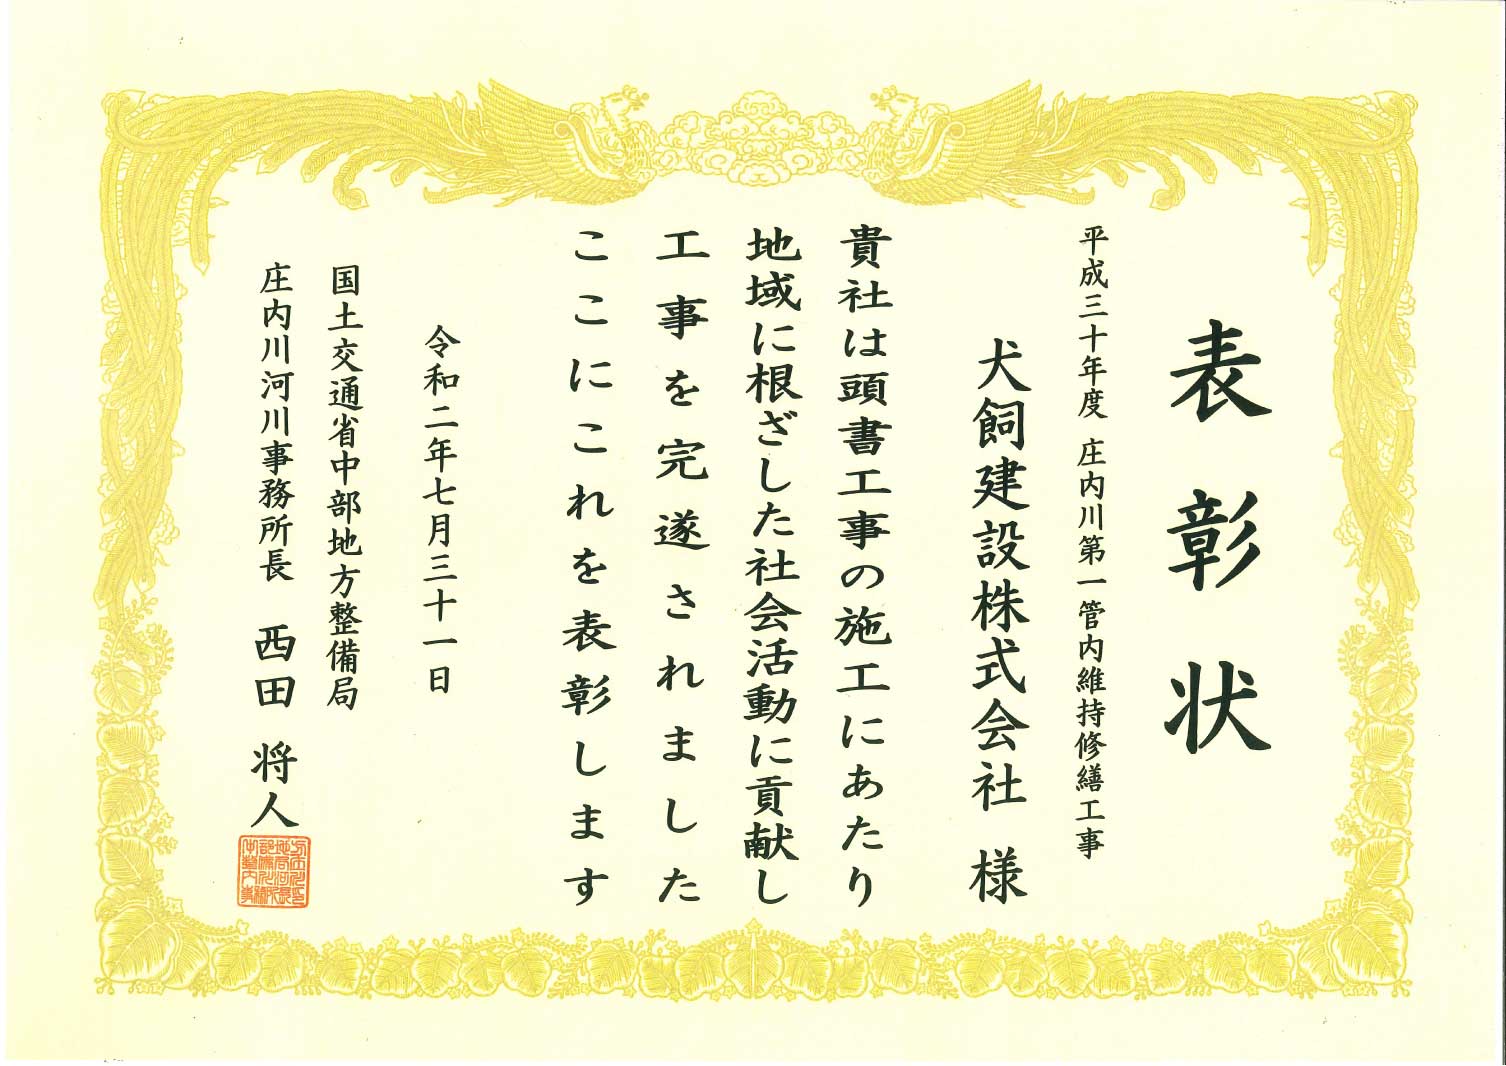 表彰状
平成三十年度 庄内川第一管内維持修繕工事
犬飼建設株式会社 様
貴社は頭書工事の施工にあたり
地域に根ざした社会活動に貢献し
工事を完遂されました
ここにこれを表彰します
令和二年七月三十一日
国土交通省中部地方整備局
庄内川河川事務所長 西田 将人